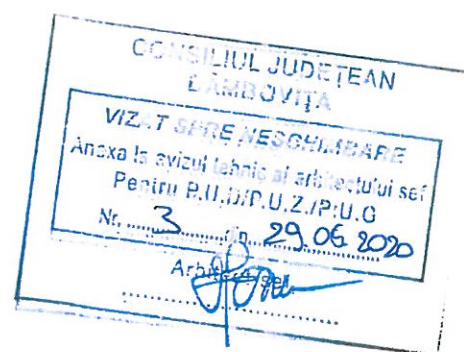 CONSILIUL JUDEȚEAN
DÂMBOVIȚA
VIZAT SPRE NESCHIMBARE
Anexa la avizul tehnic al arhitectului sef
Pentru P.U.D/P.U.Z./P.U.G
Nr. ...3... din 29.06 2020
Arhitect sef